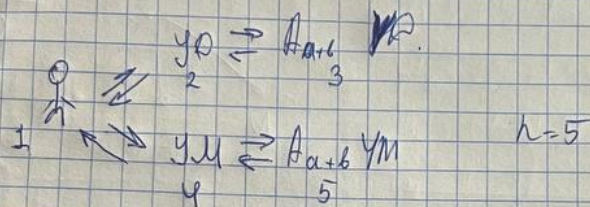 УО ⇄ Aa+b
2 3
1
УМ ⇄ Aa+b УМ n=5
4 5